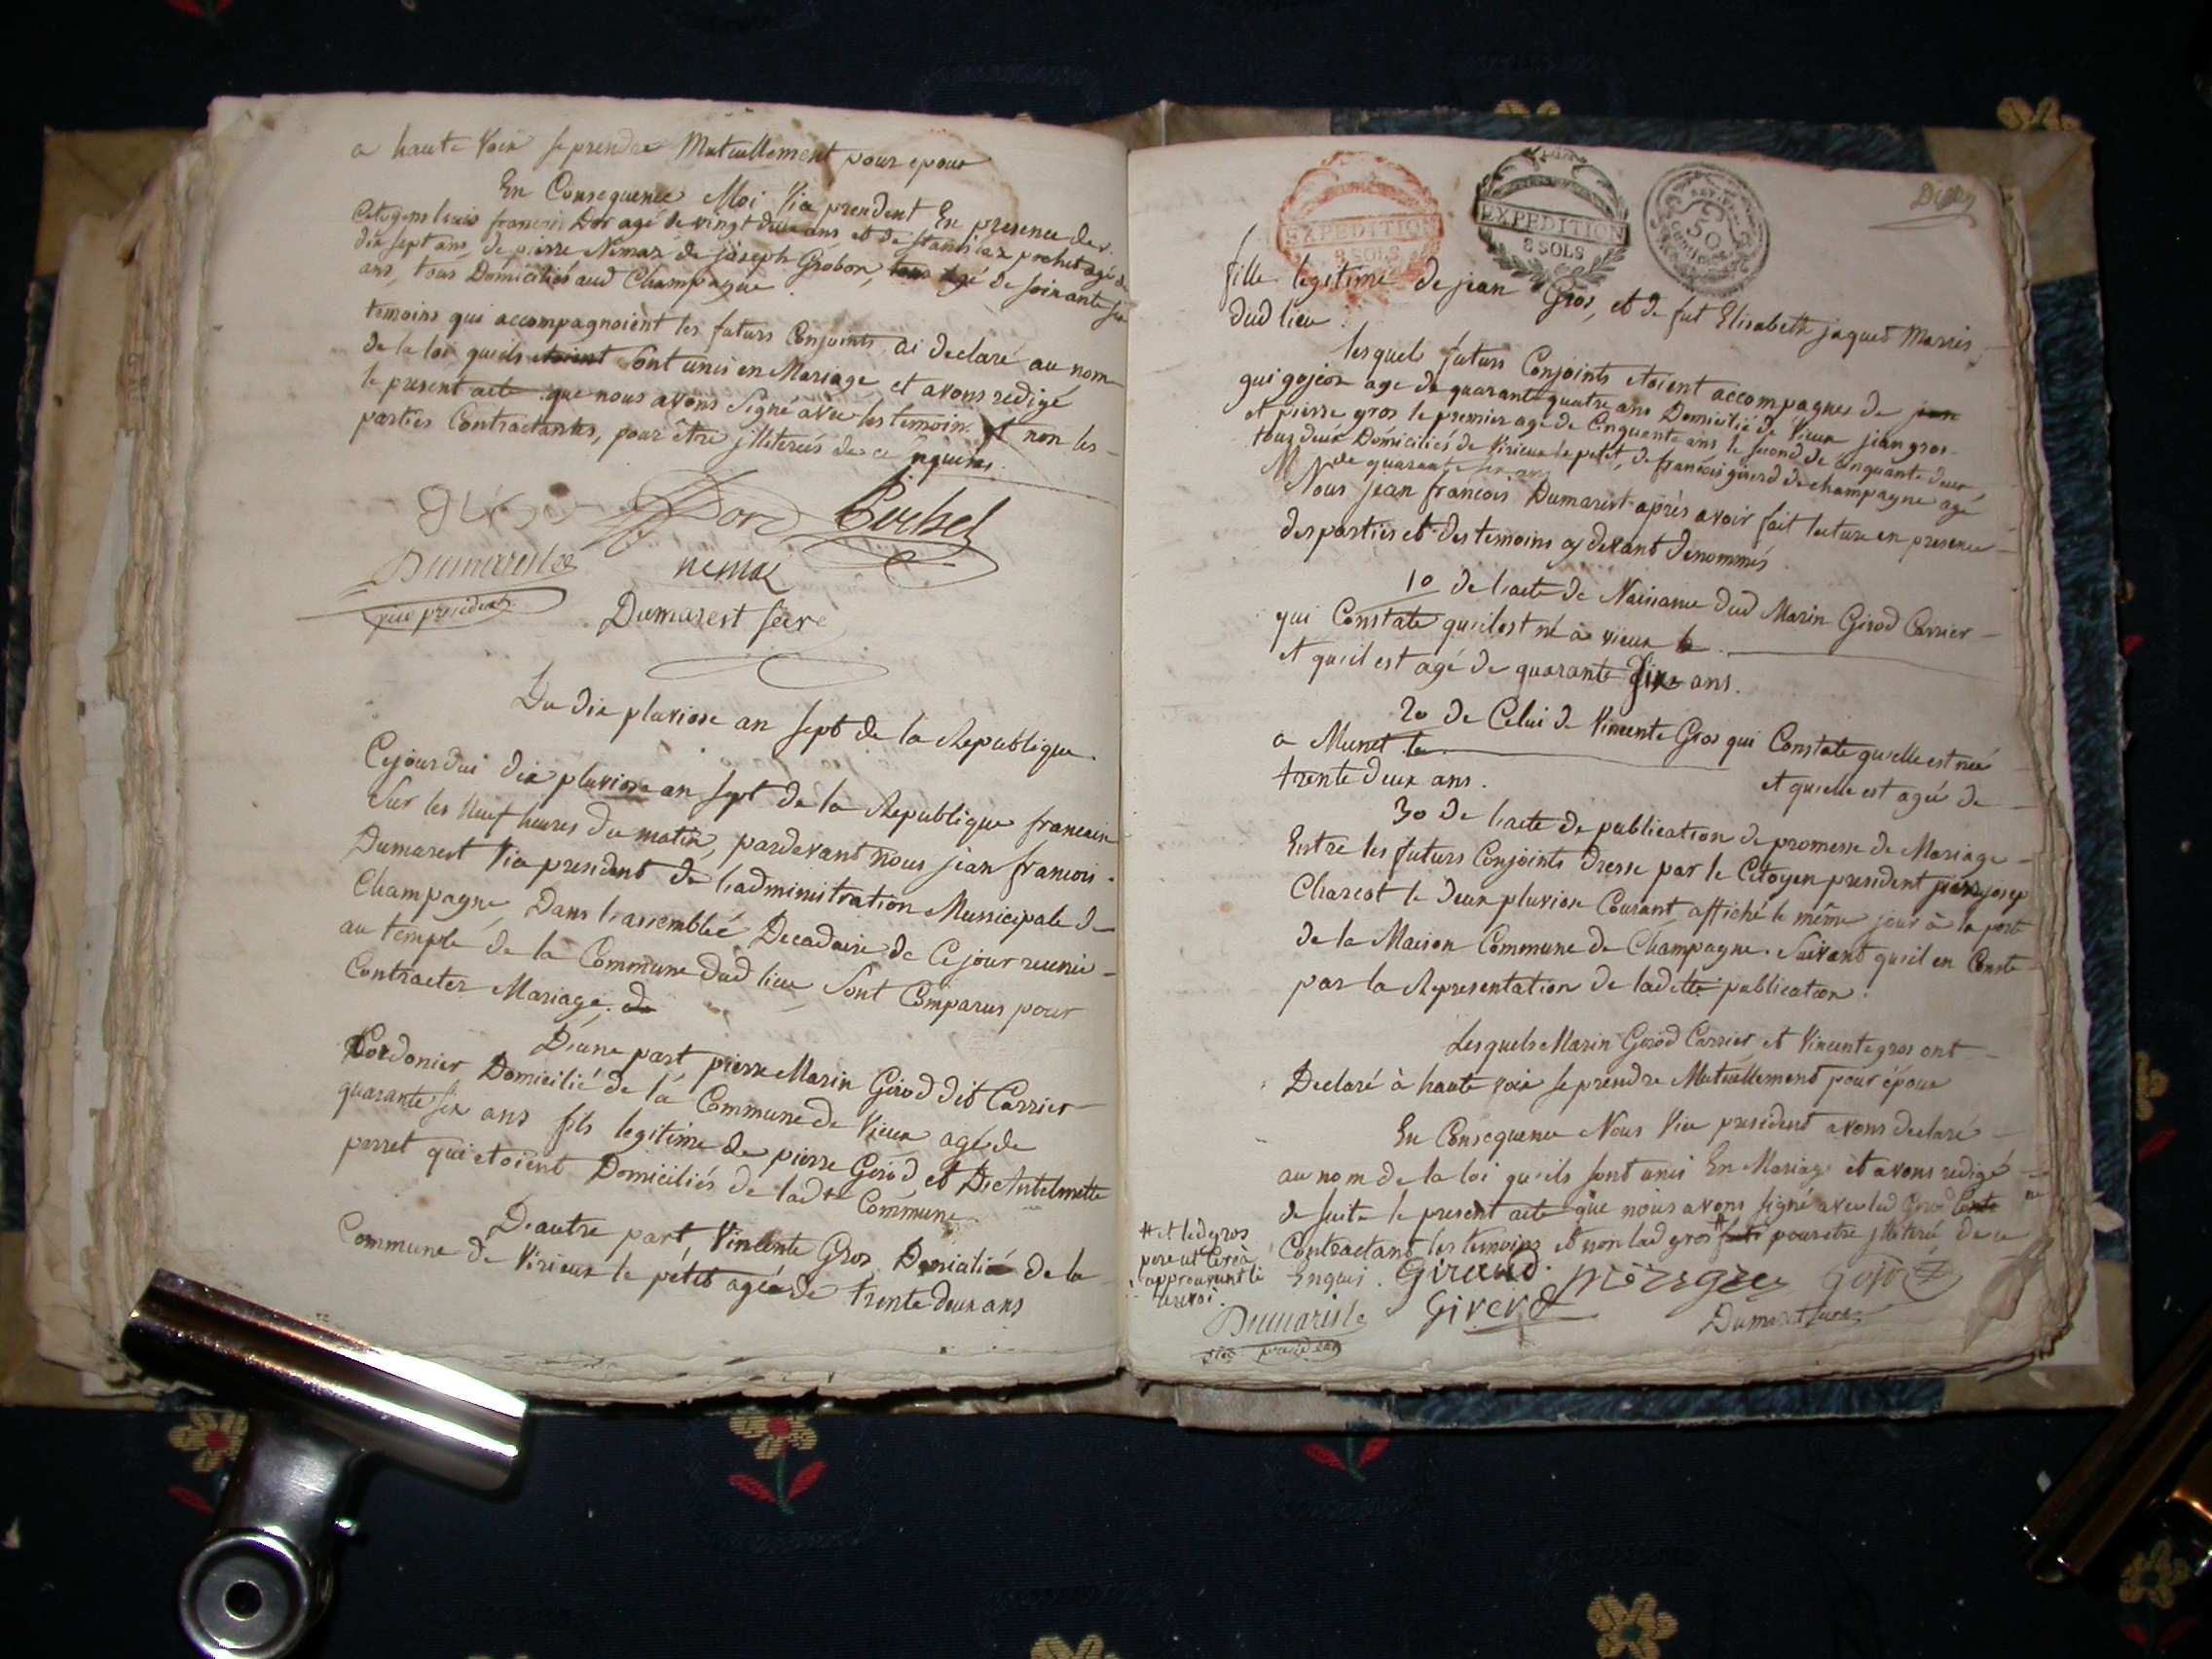 a haute voix se prendre Mutuellement pour epoux
En Consequence Moi Vice president En presence des
Citoyens louis francois Dor agé de vingt deux ans et de stanislas prochet agé de
dix sept ans, de pierre Nemoz de joseph Grobon, agé de soixante six
ans, tous Domiciliés aud Champagne
temoins qui accompagnoient les futurs Conjoints, ai declaré au nom
de la loi, qu'ils etoient sont unis en Mariage, et avons redigé
le present acte que nous avons signé avec les temoins et non les
parties Contractantes, pour être jlleterés de ce requises.
Dor Pochet
Dumarest nemoz
vice president
Dumarest secre
Du dix pluviose an sept de la Republique
Cejourdui dix pluviose an sept de la Republique francaise
Sur les neuf heures du matin, pardevant nous jean francois
Dumarest Vice president de l'administration Municipale de
Champagne, Dans l'assemblée Decadaire de Ce jour reunie
au temple de la Commune dud lieu Sont Comparus pour
Contracter Mariage. de
D'une part, pierre Marin Girod dit Carrier
Cordonier Domicilié de la Commune de Vieux agé de
quarante six ans fils legitime de pierre Girod et De Antelmette
perret qui etoient Domiciliés de ladte Commune
D'autre part, Vincente Gros Domiciliée de la
Commune de Virieux le petit agée de trente deux ans
EXPEDITION
8 SOLS
EXPEDITION
8 SOLS
50
Centimes
fille legitime de jean Gros, et de fut Elisabeth jaques Mariés
dud lieu.
lesquels futurs Conjoints etoient accompagnes de jean
gui gojoz age de quarante quatre ans Domicilié de Vieux jean gros
et pierre gros le premier agé de Cinquante ans le second de cinquante deux
tous deux Domiciliés de Virieux le petit, de francois girerd de champagne agé
de quarante six ans
Nous jean francois Dumarest après avoir fait lecture en presence
des parties et des temoins cy devant denommés
1o de l'acte de Naissance dud Marin Girod Carrier
qui Constate qu'il est né a vieux le
et qu'il est agé de quarante six ans.
2o de Celui de Vincente Gros qui Constate qu'elle est née
a Munet le
et quelle est agée de
trente deux ans.
3o de l'acte de publication de promesse de Mariage
Entre les futurs Conjoints dressé par le Citoyen president pierre josep
Charcot le deux pluviose Courant, affiché le même jour à la porte
de la Maison Commune de Champagne. Suivant qu'il en Conste
par la Representation de ladette publication.
Lesquels Marin Girod Carrier et Vincente gros ont
Declaré à haute voix se prendre Mutuellement pour époux
En Consequence Nous Vice president avons declaré
au nom de la loi qu'ils sont unis En Mariage et avons redigé
de suite le present acte que nous avons signé avec led Girod
Contractant les temoins et non lad gros pour etre jlleteré de ce
# et led gros
pere
approuvant le
renvoi.
Enquis. Giraud. gojoz
Girerd
Dumarest secre
Dumarest
vice president